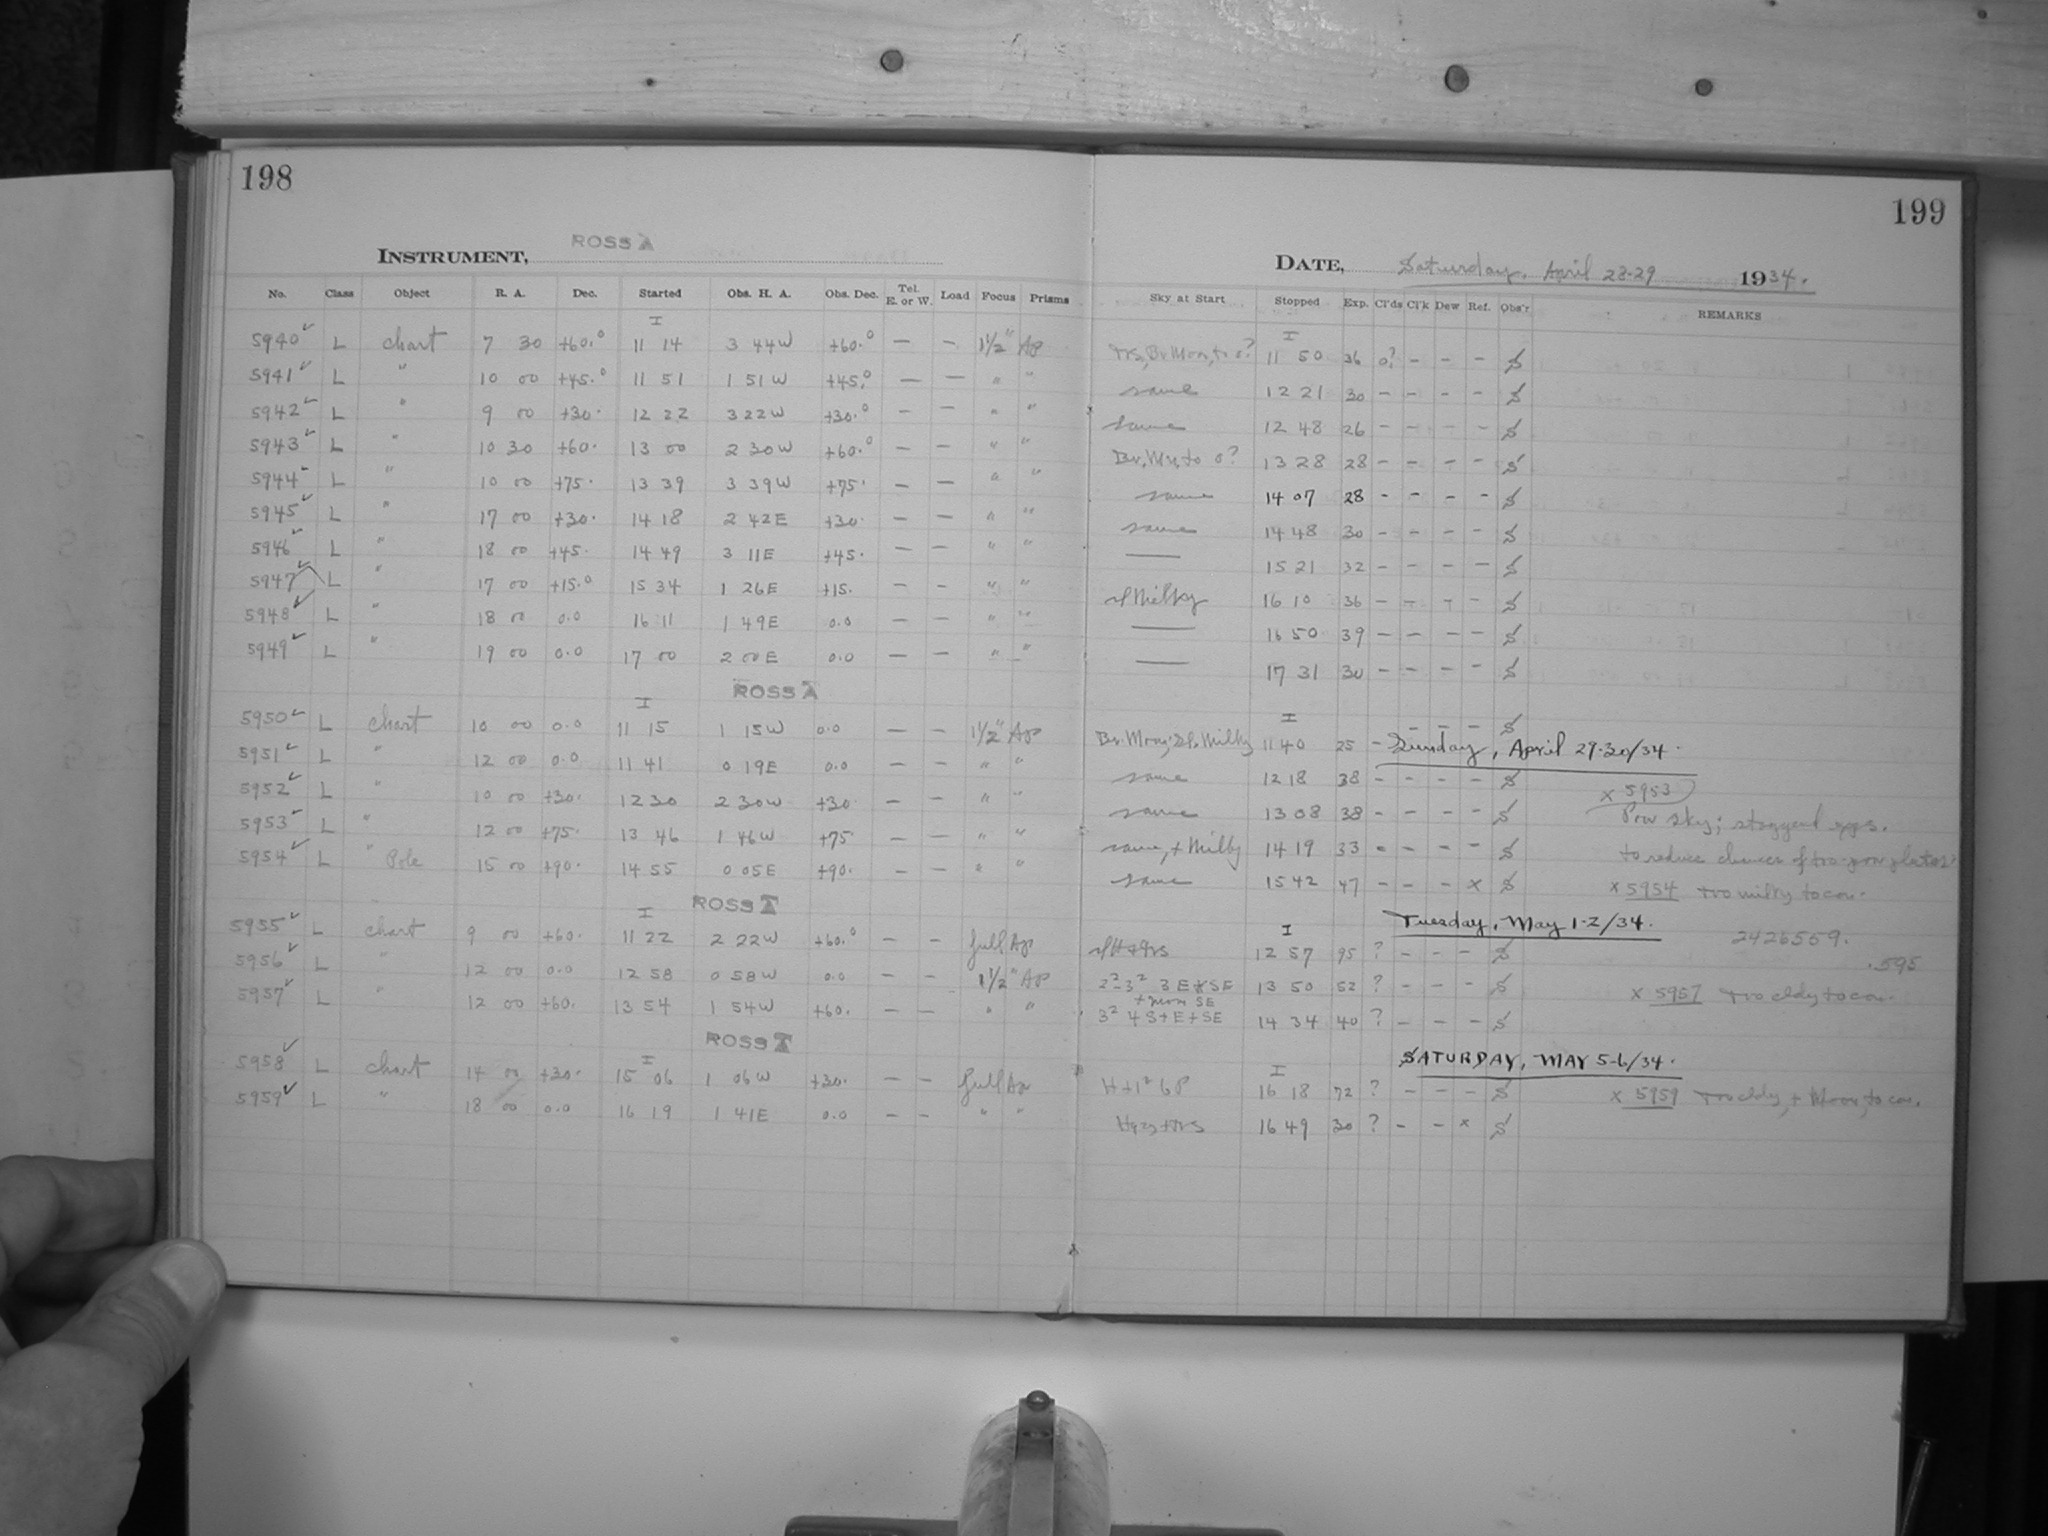 198
199
ROSS A
INSTRUMENT,
DATE, Saturday, April 28-29 1934.
No. Class Object R. A. Dec. Started Obs. H. A. Obs. Dec. Tel. E. or W. Load Focus Prisms Sky at Start Stopped Exp. Cl'ds Cl'k Dew Ref. Obs'r REMARKS
I I
5940 ✓ L chart 7 30 +60.° 11 14 3 44W +60.° — — 1½" Ap 11 50 36 0? – – – S
5941 ✓ L " 10 00 +45.° 11 51 1 51W +45.° — — " " same 12 21 30 – – – – S
5942 ✓ L " 9 00 +30. 12 22 3 22W +30.° — — " " same 12 48 26 – – – – S
5943 ✓ L " 10 30 +60. 13 00 2 30W +60.° — — " " 13 28 28 – – – – S
5944 ✓ L " 10 00 +75. 13 39 3 39W +75. — — " " same 14 07 28 – – – – S
5945 ✓ L " 17 00 +30. 14 18 2 42E +30. — — " " same 14 48 30 – – – – S
5946 ✓ L " 18 00 +45. 14 49 3 11E +45. — — " " — 15 21 32 – – – – S
5947 ✓ L " 17 00 +15.° 15 34 1 26E +15. — — " " Milky 16 10 36 – – – – S
5948 ✓ L " 18 00 0.0 16 11 1 49E 0.0 — — " " — 16 50 39 – – – – S
5949 ✓ L " 19 00 0.0 17 00 2 00E 0.0 — — " " — 17 31 30 – – – – S
ROSS A
I I
Sunday, April 29-30/34.
5950 ✓ L chart 10 00 0.0 11 15 1 15W 0.0 — — 1½" Ap Br. Moon; Sl. Milky 11 40 25 – – – – S
5951 ✓ L " 12 00 0.0 11 41 0 19E 0.0 — — " " same 12 18 38 – – – – S x 5953
5952 ✓ L " 10 00 +30. 12 30 2 30W +30 — — " " same 13 08 38 – – – – S Poor sky; staggered
5953 ✓ L " 12 00 +75. 13 46 1 46W +75 — — " " same, + Milky 14 19 33 – – – – S to reduce chances of too-poor plates
5954 ✓ L " Pole 15 00 +90. 14 55 0 05E +90. — — " " same 15 42 47 – – – x S x 5954 too milky to con.
ROSS A
I I
Tuesday, May 1-2/34.
5955 ✓ L chart 9 00 +60. 11 22 2 22W +60.° — — full Ap 12 57 95 ? – – – S 2426559.
.595
5956 ✓ L " 12 00 0.0 12 58 0 58W 0.0 — — 1½" Ap 2²-3² 3 E+SE 13 50 52 ? – – – S
+ more SE
5957 ✓ L " 12 00 +60. 13 54 1 54W +60. — — " " 3² 4 S+E+SE 14 34 40 ? – – – S x 5957 too cldy to con.
ROSS A
I I
SATURDAY, MAY 5-6/34.
5958 ✓ L chart 14 00 +30. 15 06 1 06W +30. — — full Ap 16 18 72 ? – – – S
5959 ✓ L " 18 00 0.0 16 19 1 41E 0.0 — — " " 16 49 30 ? – – x S x 5959 too cldy, + Moon, to con.